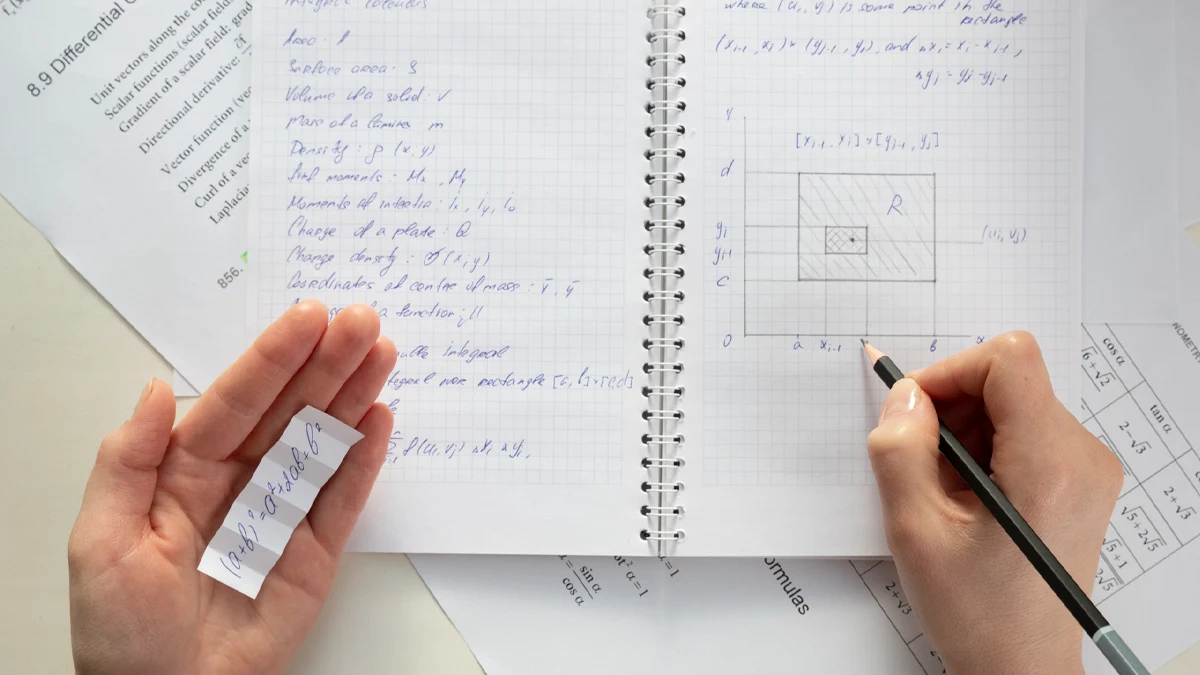 8.9 Differential
Unit vectors along the
Scalar functions (scalar
Gradient of a scalar field:
Directional derivative:
Vector function
Divergence of a
Curl of a
856.
Integral Calculus
Area - A
Surface area - S
Volume of a solid : V
Mass of a lamina m
Density : ρ (x, y)
moments - Mx , My
Moments of inertia : Ix , Iy , I0
Charge of a plate : Q
Charge density : σ (x, y)
Coordinates of centre of mass : x̄ , ȳ
of a function : μ
integral
rectangle [a, b] × [c, d]
f(ui, vj) Δxi Δyj,
(a+b)² = a²+2ab+b²
where (ui, vj) is some point in the
rectangle
(xi-1 , xi) × (yj-1 , yj), and Δxi = xi - xi-1 ,
Δyj = yj - yj-1
y
[xi-1 , xi] × [yj-1 , yj]
d
R
yj
(ui, vj)
yj-1
c
0 a xi-1 b x
cos α
tan α
√6 + √2
2 − √3
2 + √3
√5 + 2√5
√5 + 1
2√5
= sin α
cos α
α = 1
= 1
ormulas
2 + √3